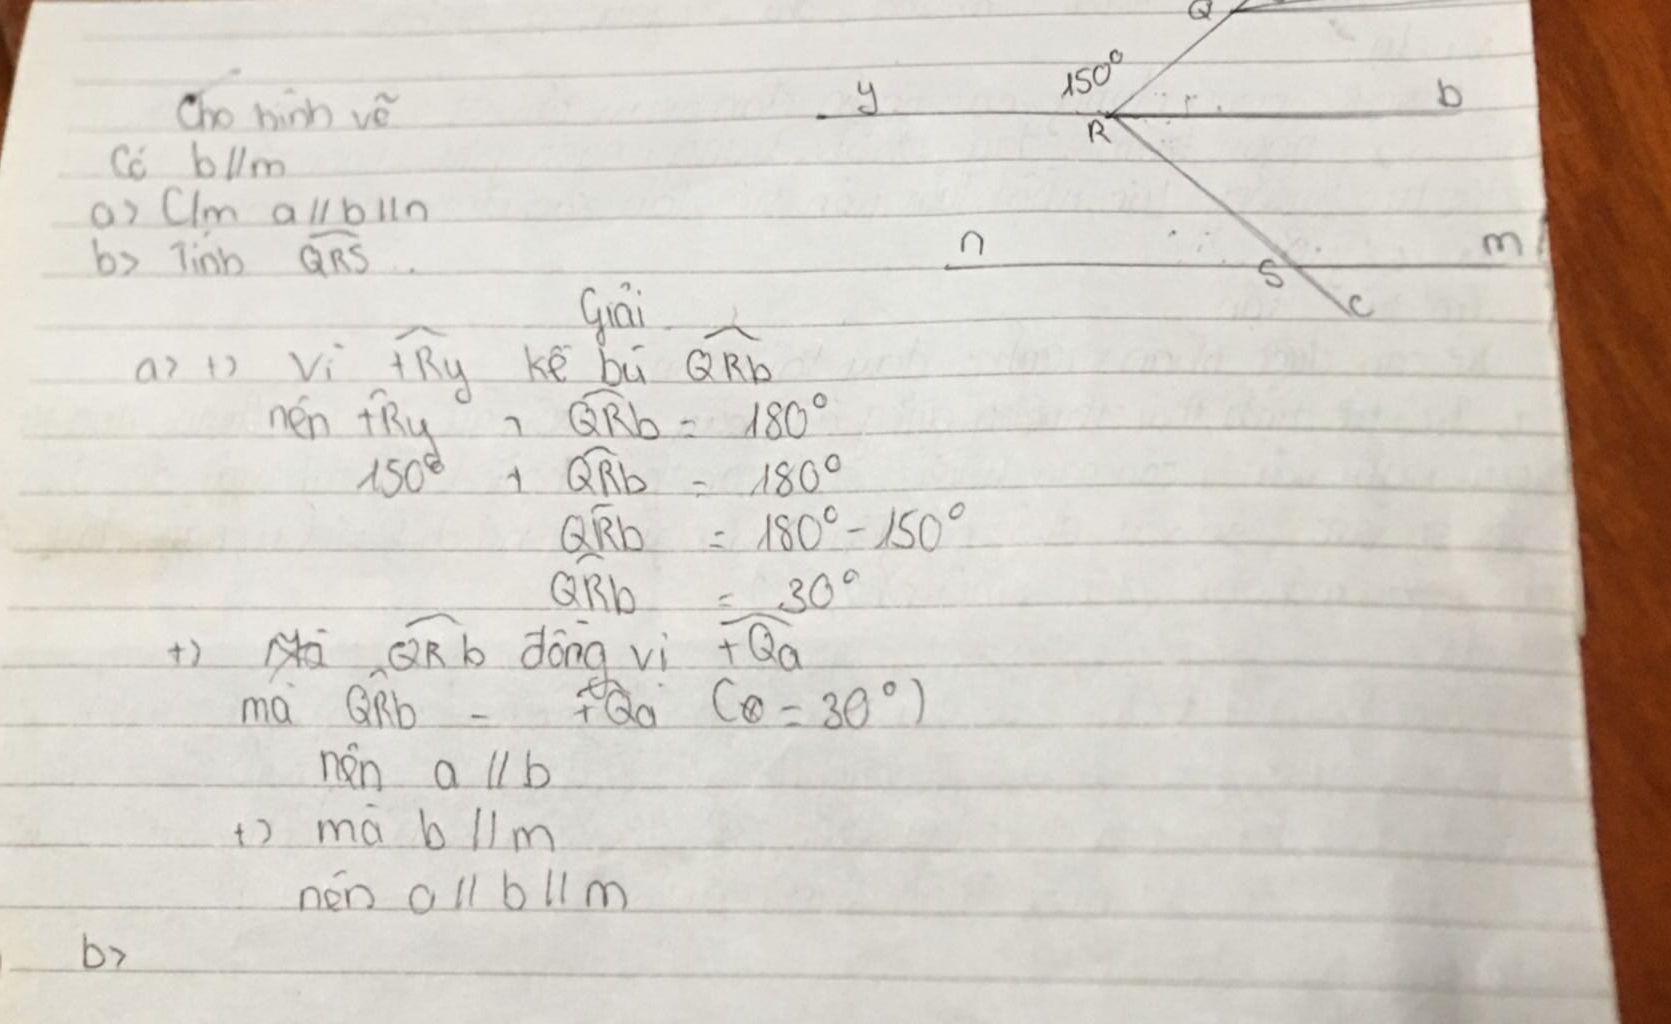 Q
150°
y
b
R
Cho hình vẽ
Có b//m
a> C/m a//b//n
b> Tính QRS
n
m
S
C
Giải
a> +) Vì tRy kề bù QRb
nên tRy + QRb = 180°
150° + QRb = 180°
QRb = 180° - 150°
QRb = 30°
+) QRb đồng vị tQa
mà QRb = tQa (= 30°)
nên a //b
+) mà b //m
nên a // b // m
b>